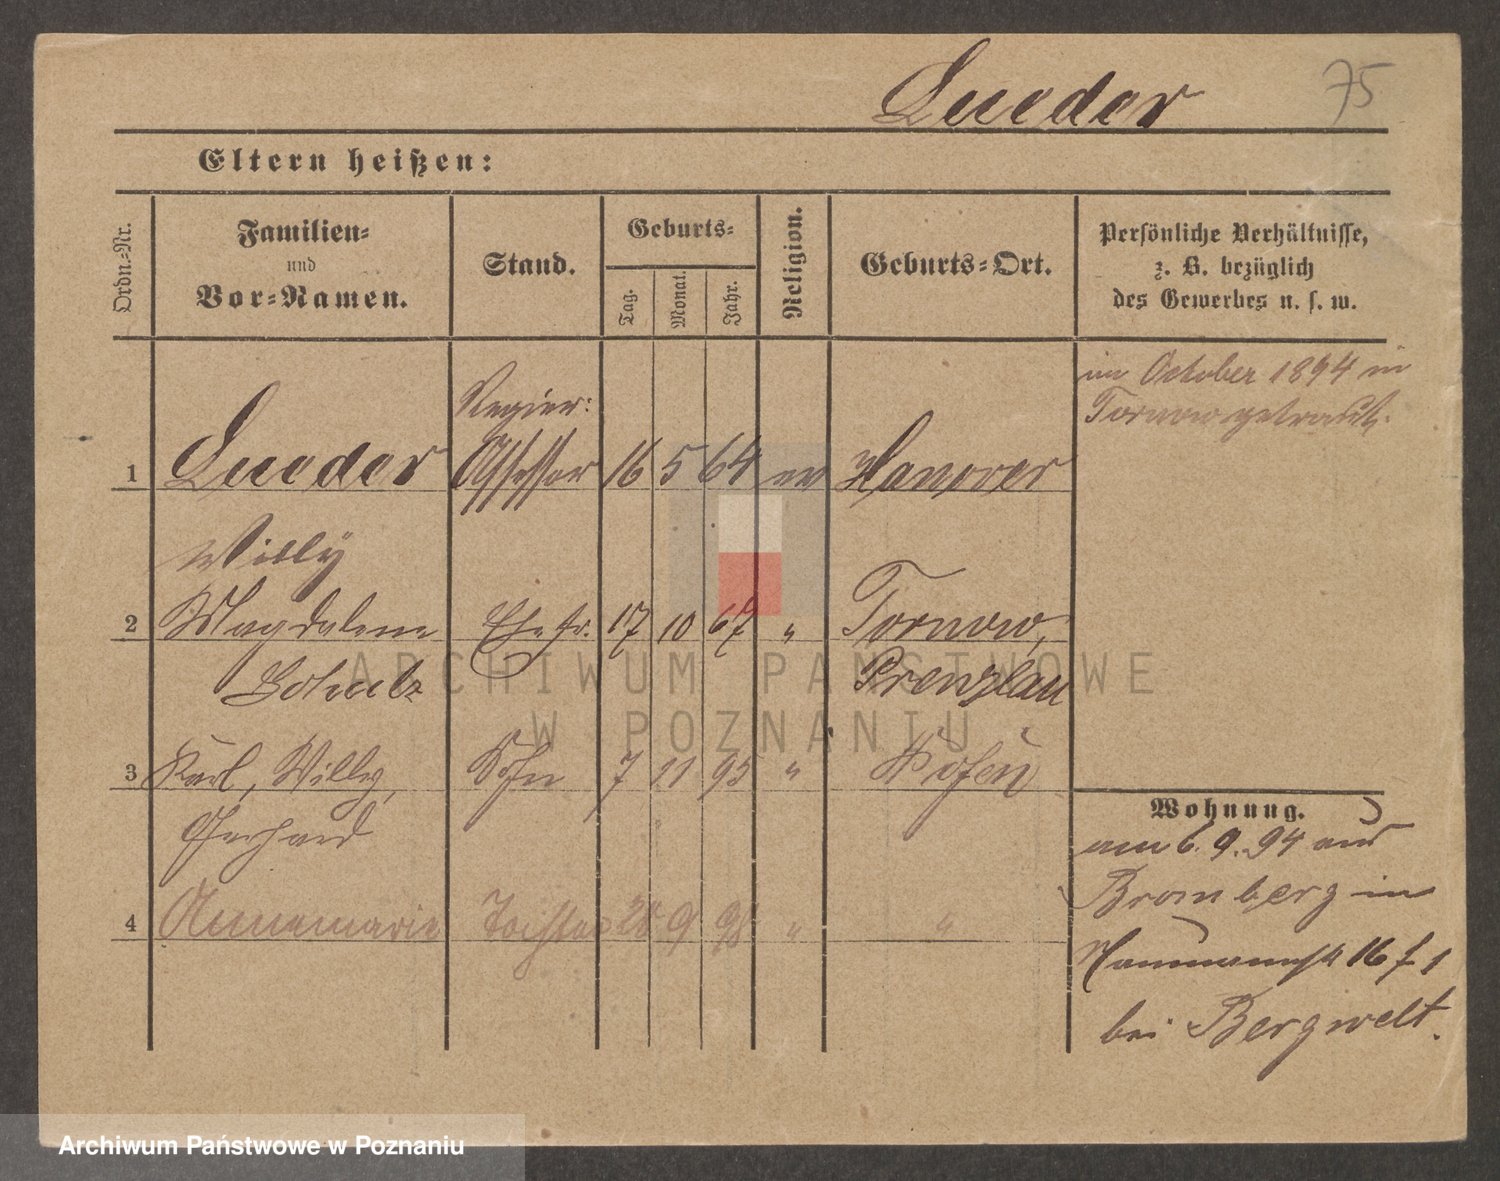 Lueder 75
Eltern heißen:
Ordn.-Nr.
Familien-
und
Vor-Namen.
Stand.
Geburts-
Tag.
Monat.
Jahr.
Religion.
Geburts-Ort.
Persönliche Verhältnisse,
z. B. bezüglich
des Gewerbes u. s. w.
im October 1894 in
Tornow getraut.
Regier:
1 Lueder Assessor 16 5 64 ev Hanover
Willy
2 Magdalene Ehefr. 17 10 67 " Tornow,
Prenzlau
3 Karl, Willy, Sohn 7 11 95 " Posen
Gerhard
4 Annemarie Tochter 28 9 98 " "
Wohnung.
am 6. 9. 94 aus
Bromberg in
Naumannstr 16 f 1
bei Bergwelt.
ARCHIWUM PAŃSTWOWE
W POZNANIU
Archiwum Państwowe w Poznaniu